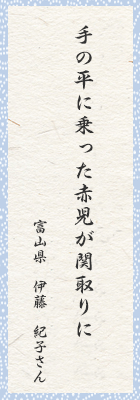 手の平に乗った赤児が関取りに
富山県　伊藤　紀子さん